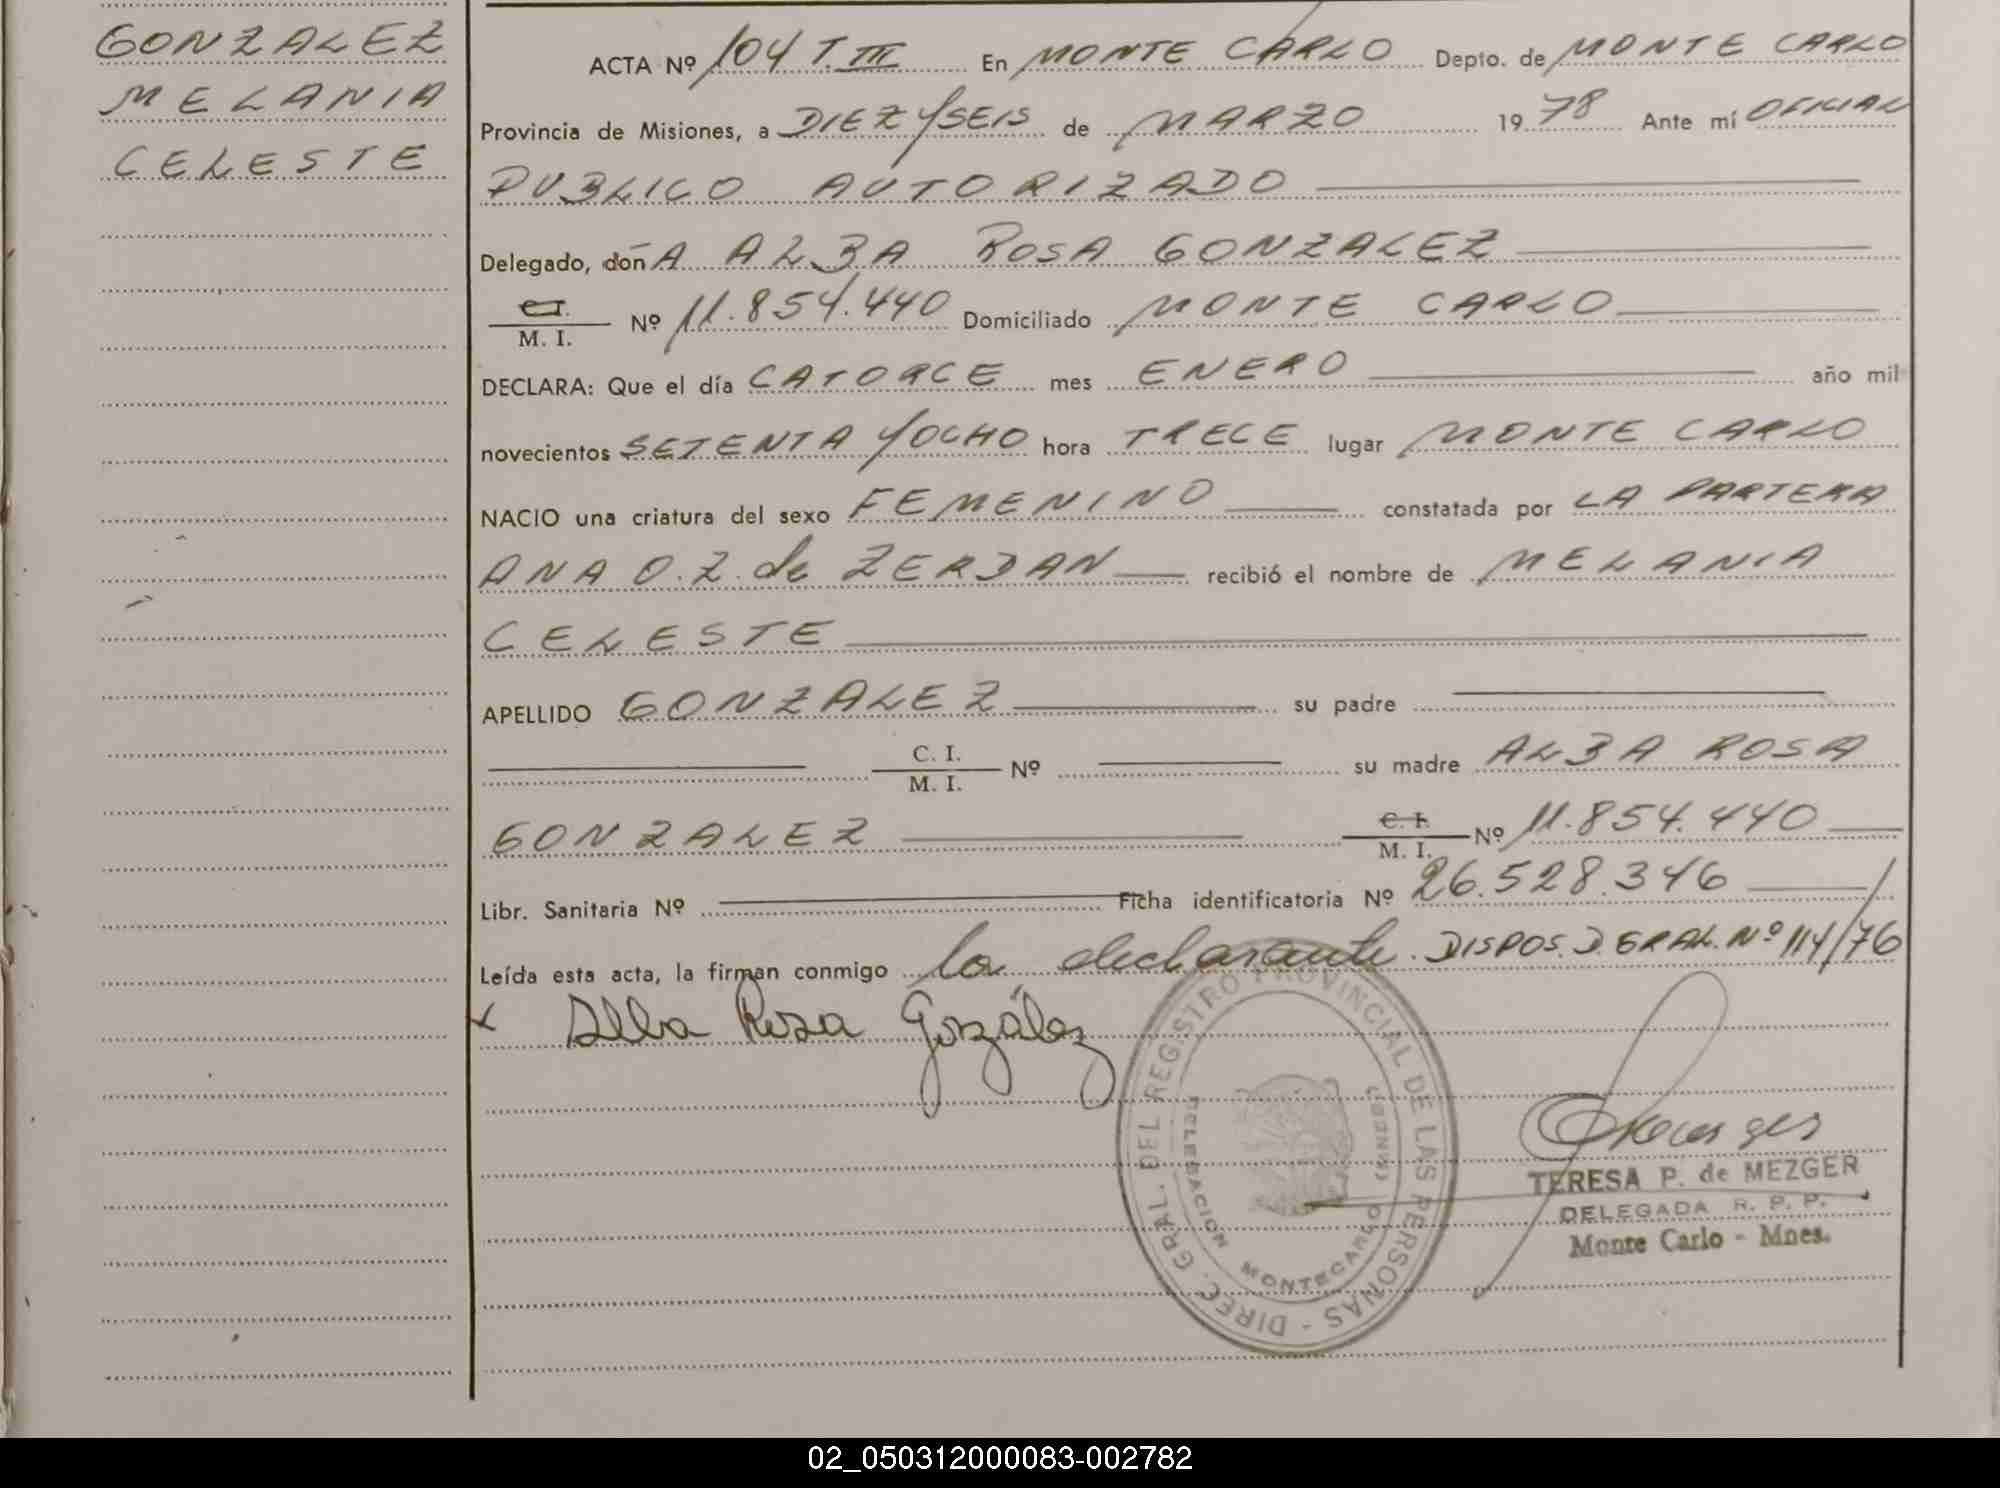 GONZALEZ
MELANIA
CELESTE
ACTA Nº 104 T. III En MONTE CARLO Depto. de MONTE CARLO
Provincia de Misiones, a DIEZ Y SEIS de MARZO 1978 Ante mí OFICIAL
PUBLICO AUTORIZADO
Delegado, donA ALBA ROSA GONZALEZ
C. I.
M. I. Nº 11.854.440 Domiciliado MONTE CARLO
DECLARA: Que el día CATORCE mes ENERO año mil
novecientos SETENTA Y OCHO hora TRECE lugar MONTE CARLO
NACIO una criatura del sexo FEMENINO constatada por LA PARTERA
ANA O. Z. de ZERDAN recibió el nombre de MELANIA
CELESTE
APELLIDO GONZALEZ su padre
C. I.
M. I. Nº su madre ALBA ROSA
GONZALEZ C. I.
M. I. Nº 11.854.440
Libr. Sanitaria Nº Ficha identificatoria Nº 26.528.346
Leída esta acta, la firman conmigo la declarante. DISPOS. D. GRAL. Nº 114/76
x Alba Rosa González
DIREC. GRAL. DEL REGISTRO PROVINCIAL DE LAS PERSONAS -
DELEGACION MONTECARLO (MISIONES)
TERESA P. de MEZGER
DELEGADA R. P. P.
Monte Carlo - Mnes.
02_050312000083-002782